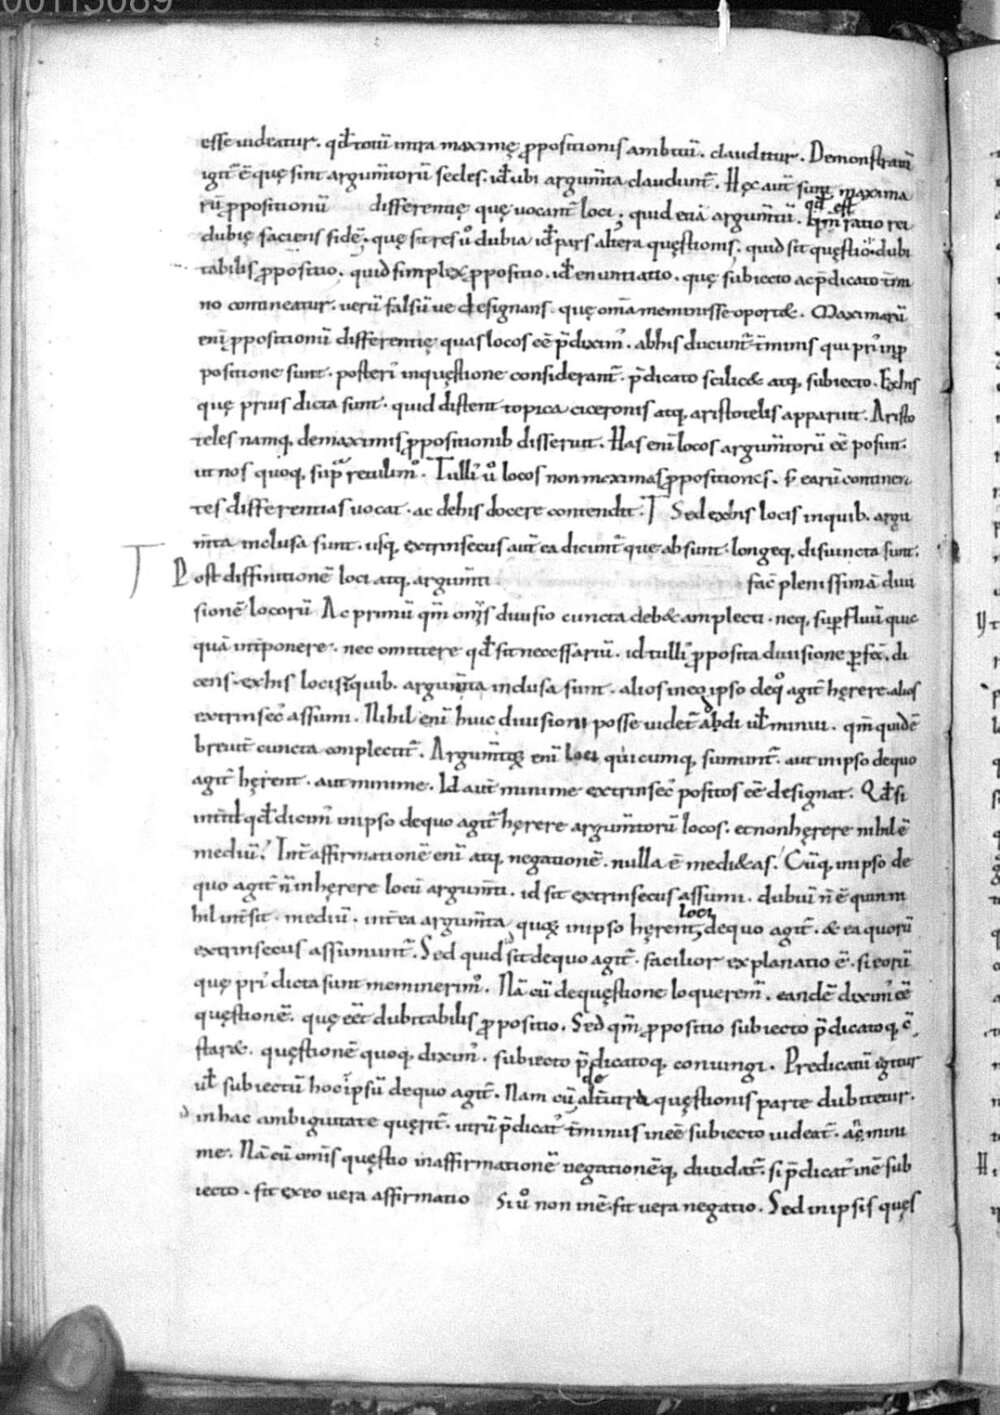 00113089
esse uidetur. qđ totū intra maximę ꝓpositionis ambitū. clauditur. Demonstratū
igit̄ ē quę sint argum̄torū sedes. id ubi argum̄ta claudunt̄. Hęc aut̄ sunt maxima
rū ꝓpositionū differentię quę uocant̄ loci; quid etiā argum̄tū. qđ est qm̄ ratio rei
dubię faciens fidē. quę sit res ů dubia id pars altera quęstionis. quid sit quęstio. dubi
tabilis ꝓpositio. quid simplex ꝓpositio. id enuntiatio. quę subiecto ac p̄dicato t̄mi
no contineatur. uerū falsūue designans. quę om̄a meminisse oportet. Maximarū
eni ꝓpositionū differentię quas locos eē p̄diximꝰ. ab his ducunt̄ t̄minis qui priꝰ in ꝓ
positione sunt. posteriꝰ in quęstione considerant̄. p̄dicato scilic& atq, subiecto. Ex his
quę prius dicta sunt. quid distent topica ciceronis atq, aristotelis apparuit. Aristo
teles namq, de maximis ꝓpositionib disseruit. Has eni locos argum̄torū eē posuit.
ut nos quoq, supra retulimꝰ. Tulliꝰ ů locos non maximas ꝓpositiones. s; earū continen
tes differentias uocat. ac de his docere contendit. Sed ex his locis in quib. argu
m̄ta inclusa sunt. usq, extrinsecus aut̄ ea dicunt̄ que absunt. longeq, disiuncta sunt.
Post diffinitionē loci atq, argum̄ti fac̄ plenissimā diui
sionē locorū Ac primū qm̄ om̄is diuisio cuncta deb& amplecti. neq, suꝑfluū quic
quā int̄ponere. nec omittere qđ sit necessariū. id tulliꝰ ꝓposita diuisione ꝑfec̄. di
cens. ex his locis in quib. argum̄ta inclusa sunt. alios in eo ipso de quo agit̄ hęrere. alios
extrinsecꝰ assumi. Nihil eni huic diuisioni posse uidet̄ abdi ut̄ minui. qm̄ quidē
breuit̄ cuncta conplectit̄. Argum̄tiq, eni loci quicumq, sumunt̄. aut in ipso de quo
agit̄ hęrent. aut minime. Id aut̄ minime extrinsecꝰ positos eē designat. Qđ si
int̄ id qđ dicimꝰ in ipso de quo agit̄ hęrere argum̄torū locos. et non hęrere nihil ē
mediū. Int̄ affirmationē eni atq, negationē. nulla ē medi&as. Cūq, in ipso de
quo agit̄ n̄ inhęrere locū argum̄ti. id sit extrinsecus assumi. dubiū n̄ ē quin ni
hil int̄sit. mediū. int̄ ea argum̄ta quoꝝ in ipso hęrent loci de quo agit̄. & ea quorū
extrinsecus assumunt̄. Sed quid sit de quo agit̄. facilior explanatio ē. si eorū
quę priꝰ dicta sunt meminerimꝰ. Nā cū de quęstione loqueremꝰ. eandē diximꝰ eē
quęstionē. quę eēt dubitabilis ꝓpositio. Sed qm̄ ꝓpositio subiecto p̄dicatoq, c̄
star&. quęstionē quoq, diximꝰ. subiecto p̄dicatoq, coniungi. Predicatū igitur
ut̄ subiectū hoc ipsū de quo agit̄. Nam cū de alt̄utra quęstionis parte dubitetur.
in hac ambiguitate querit̄. utrū p̄dicatꝰ t̄minus ineē subiecto uideat̄. an mini
me. Nā cū om̄is quęstio in affirmationē negationēq, diuidat̄. si p̄dicatꝰ inē sub
iecto. fit ex eo uera affirmatio Si ů non inē. fit uera negatio. Sed in ipsis quęs